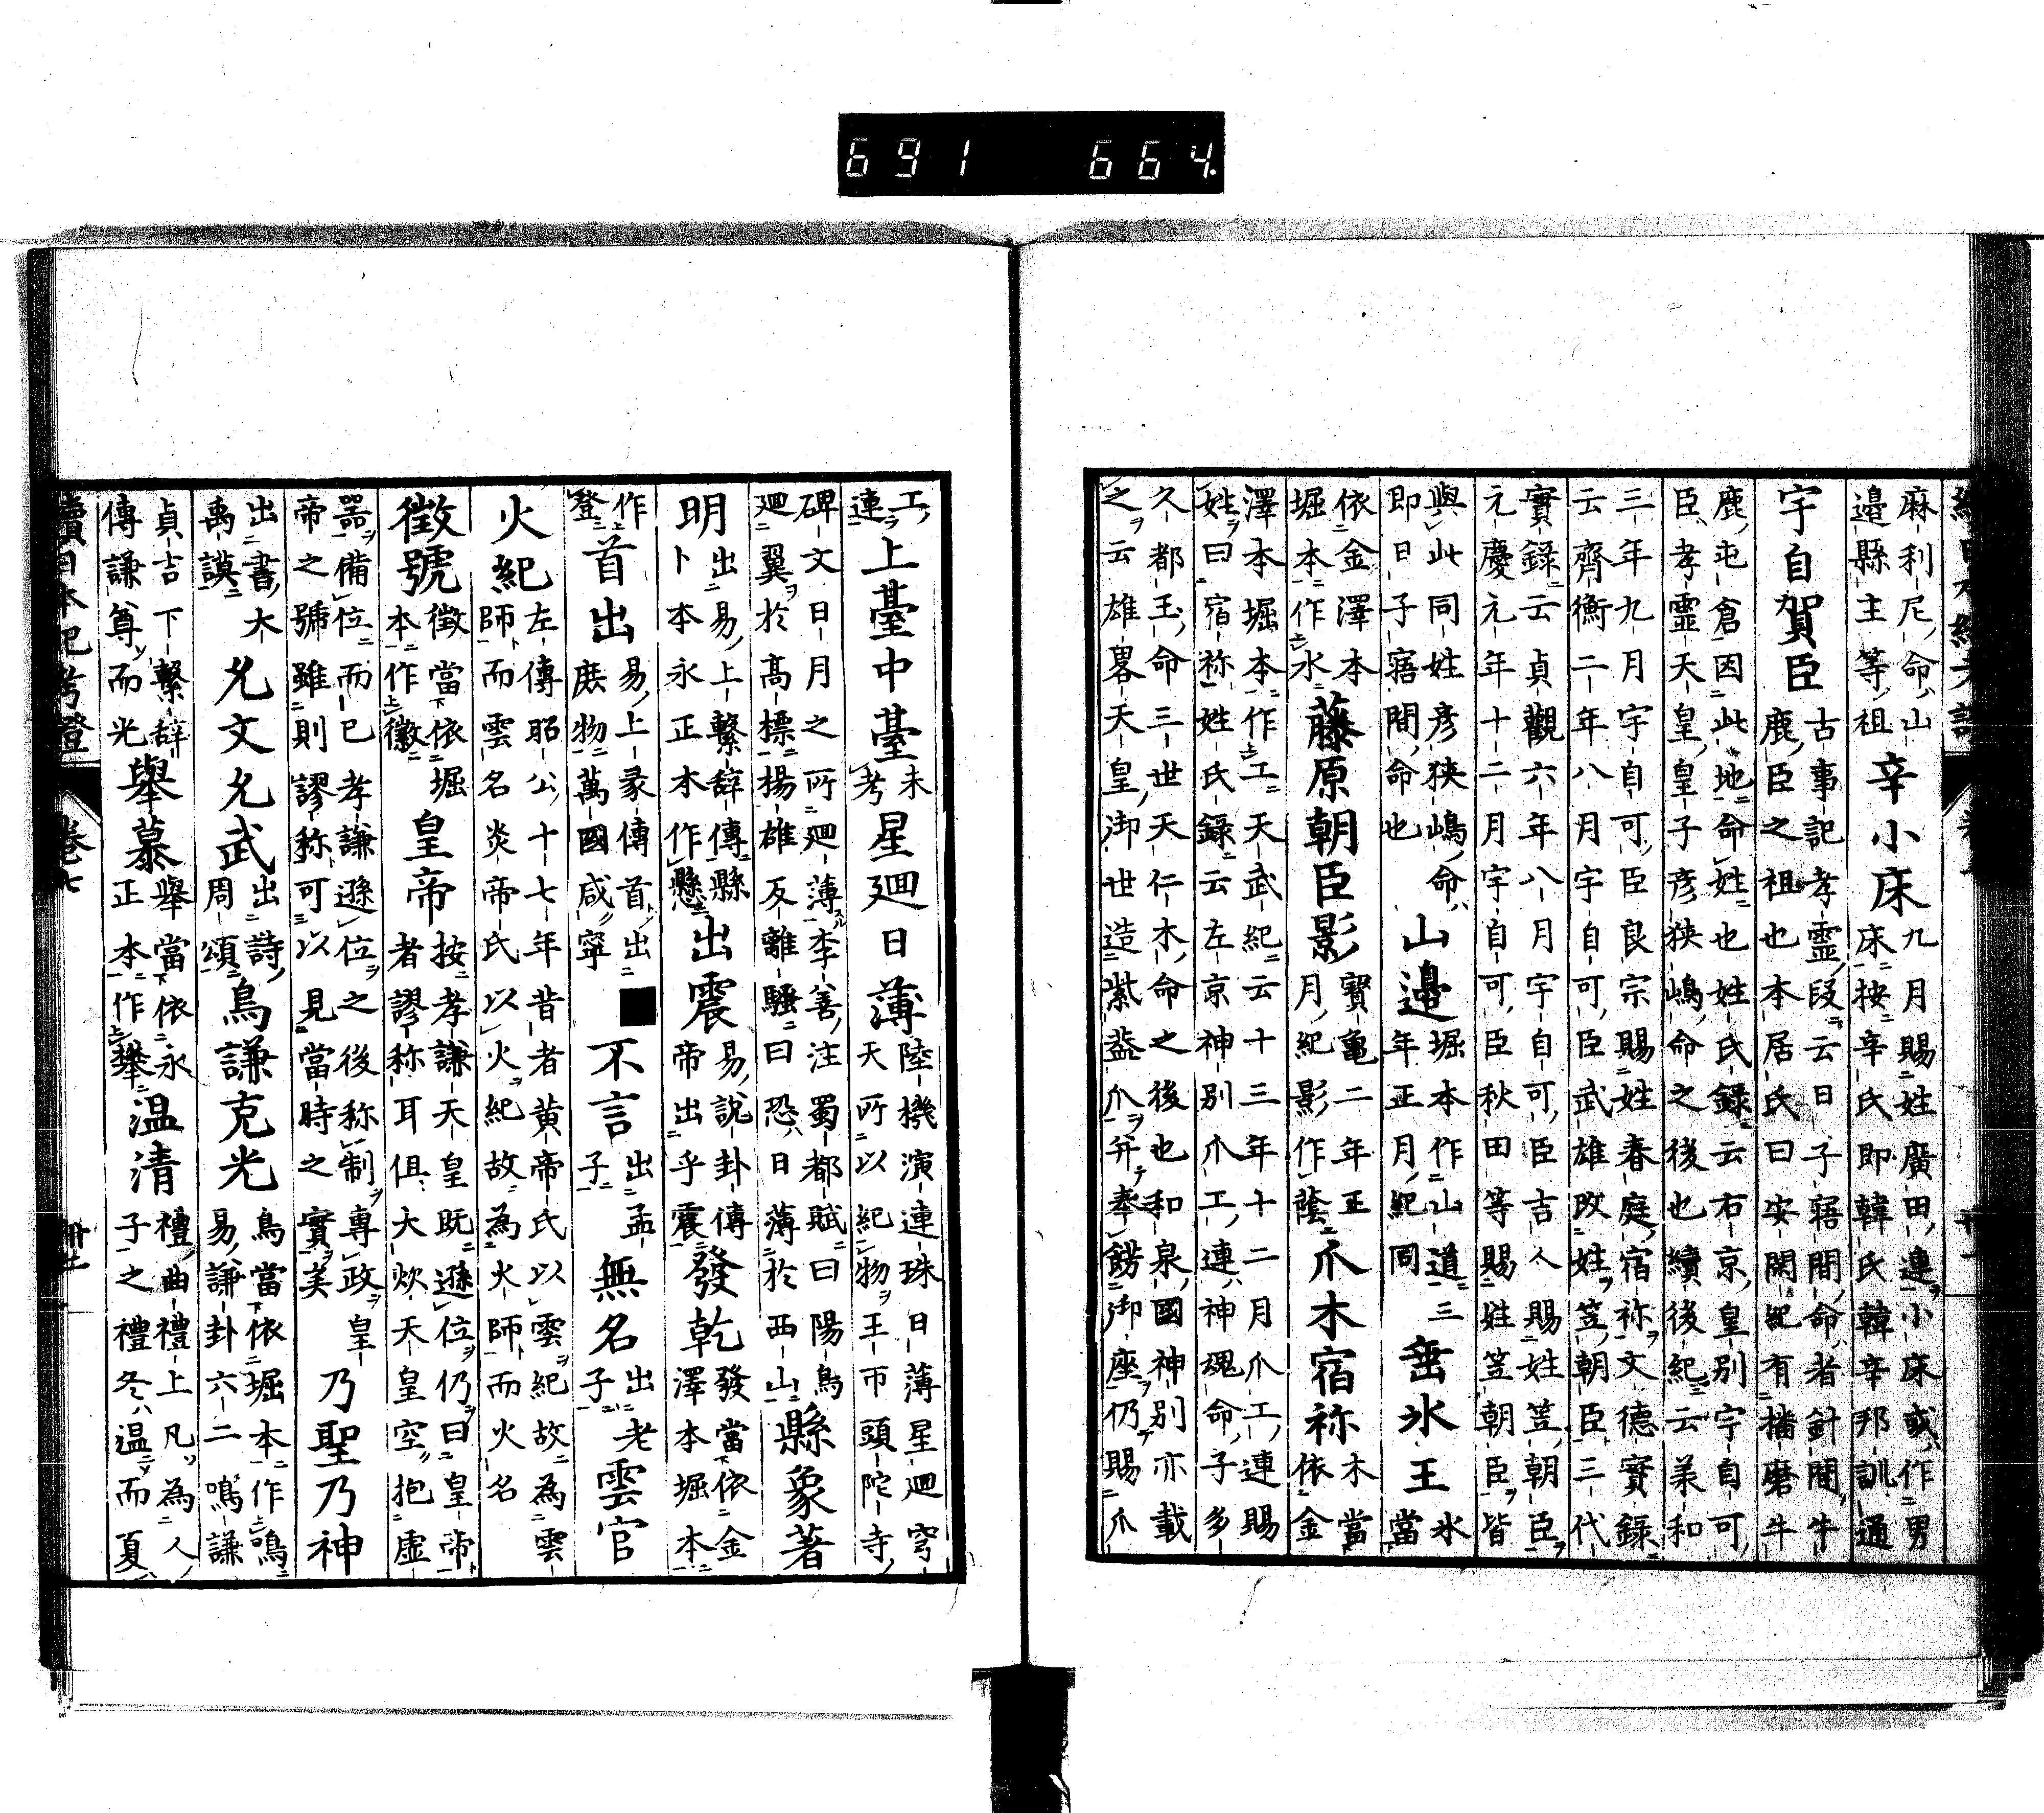 續日本紀考證
麻利尼命山
邉縣主等祖
辛小床
九月賜姓廣田連小床或作男
床按辛氏即韓氏韓辛邦訓通
宇自賀臣
古事記孝霊段云日子寤間命者針間牛
鹿臣之祖也本居氏曰安閑紀有播磨牛
鹿屯倉因此地命姓也姓氏録云右京皇別宇自可
臣孝霊天皇皇子彦狭嶋命之後也續後紀云羕和
三年九月宇自可臣良宗賜姓春庭宿祢文德實錄
云齊衡二年八月宇自可臣武雄改姓笠朝臣三代
實錄云貞觀六年八月宇自可臣吉人賜姓笠朝臣
元慶元年十二月宇自可臣秋田等賜姓笠朝臣皆
與此同姓彦狭嶋命
即日子寤間命也
山邉
堀本作山道三
年正月紀同
垂水王
水
當
依金澤本
堀本作水
藤原朝臣影
寳亀二年正
月紀影作蔭
爪木宿祢
木當
依金
澤本堀本作工天武紀云十三年十二月爪工連賜
姓曰宿祢姓氏錄云左京神別爪工連神魂命子多
久都玉命三世天仁木命之後也和泉國神別亦載
之云雄畧天皇御世造紫葢爪并奉餝御座仍賜爪
工
連
上臺中臺
未
考
星廻日薄
陸機演連珠日薄星廻穹
天所以紀物王巾頭陀寺
碑文日月之所廻薄李善注蜀都賦曰陽鳥
廻翼於高標揚雄反離騒曰恐日薄於西山
縣象著
明
出易上繋辞傳縣
卜本永正本作懸
出震
易説卦傳
帝出乎震
發乾
發當依金
澤本堀本
作
登
首出
易上彖傳首出
庶物萬國咸寧
不言
出孟
子
無名
出老
子
雲官
火紀
左傳昭公十七年昔者黄帝氏以雲紀故為雲
師而雲名炎帝氏以火紀故為火師而火名
徴號
徴當依堀
本作徽
皇帝
按孝謙天皇既遜位仍曰皇帝
者謬称耳但大炊天皇空抱虚
器備位而已孝謙遜位之後称制專政皇
帝之號雖則謬称可以見當時之實美
乃聖乃神
出書大
禹謨
允文允武
出詩
周頌
鳥謙克光
鳥當依堀本作鳴
易謙卦六二鳴謙
貞吉下繋辞
傳謙尊而光
舉慕
舉當依永
正本作攀
温清
禮曲禮上凡為人
子之禮冬温而夏
續日本紀考證
卷七
691 664.